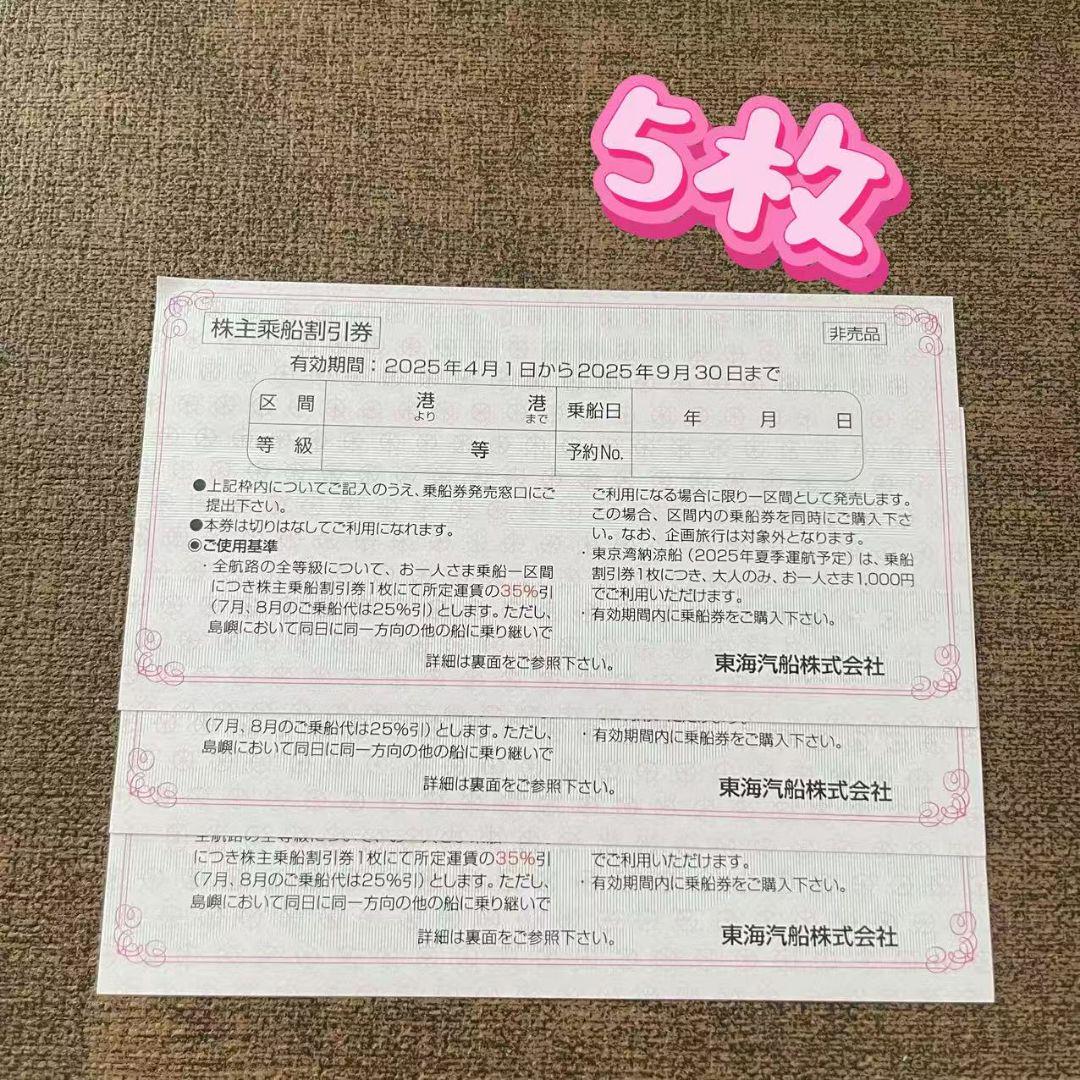 5枚
株主乗船割引券
非売品
有効期間：2025年4月1日から2025年9月30日まで
区間 港より 港まで 乗船日 年 月 日
等級 等 予約No.
●上記枠内についてご記入のうえ、乗船券発売窓口にご
提出下さい。
●本券は切りはなしてご利用になれます。
◉ご使用基準
・全航路の全等級について、お一人さま乗船一区間
につき株主乗船割引券1枚にて所定運賃の35%引
(7月、8月のご乗船代は25%引)とします。ただし、
島嶼において同日に同一方向の他の船に乗り継いで
ご利用になる場合に限り一区間として発売します。
この場合、区間内の乗船券を同時にご購入下さ
い。なお、企画旅行は対象外となります。
・東京湾納涼船(2025年夏季運航予定)は、乗船
割引券1枚につき、大人のみ、お一人さま1,000円
でご利用いただけます。
・有効期間内に乗船券をご購入下さい。
詳細は裏面をご参照下さい。
東海汽船株式会社
(7月、8月のご乗船代は25%引)とします。ただし、
島嶼において同日に同一方向の他の船に乗り継いで
・有効期間内に乗船券をご購入下さい。
詳細は裏面をご参照下さい。
東海汽船株式会社
につき株主乗船割引券1枚にて所定運賃の35%引
(7月、8月のご乗船代は25%引)とします。ただし、
島嶼において同日に同一方向の他の船に乗り継いで
でご利用いただけます。
・有効期間内に乗船券をご購入下さい。
詳細は裏面をご参照下さい。
東海汽船株式会社